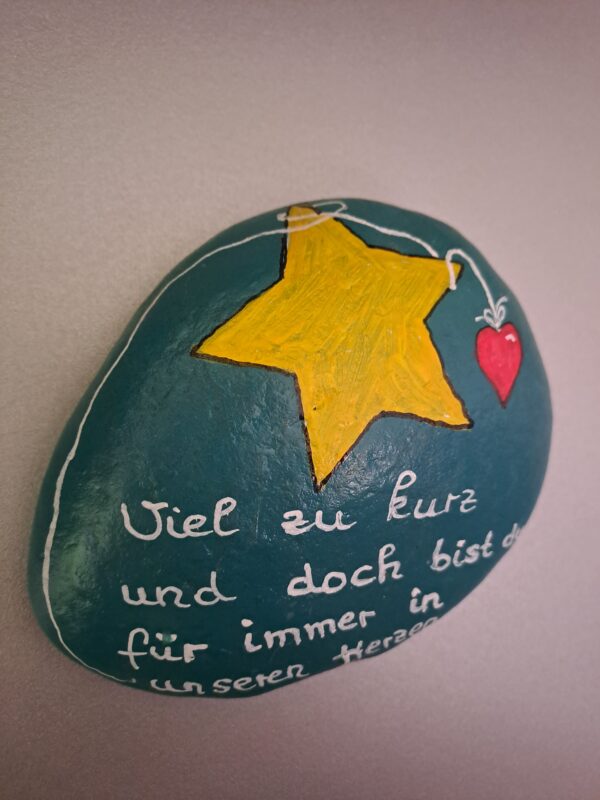 Viel zu kurz
und doch bist du
für immer in
unseren Herzen